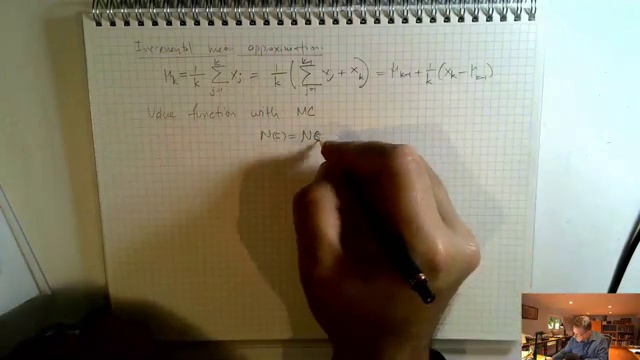 Incremental mean approximation.
μ_k = 1/k ∑_{j=1}^{k} x_j = 1/k ( ∑_{j=1}^{k-1} x_j + x_k ) = μ_{k-1} + 1/k (x_k - μ_{k-1})
Value function with MC
N(s) = N(s